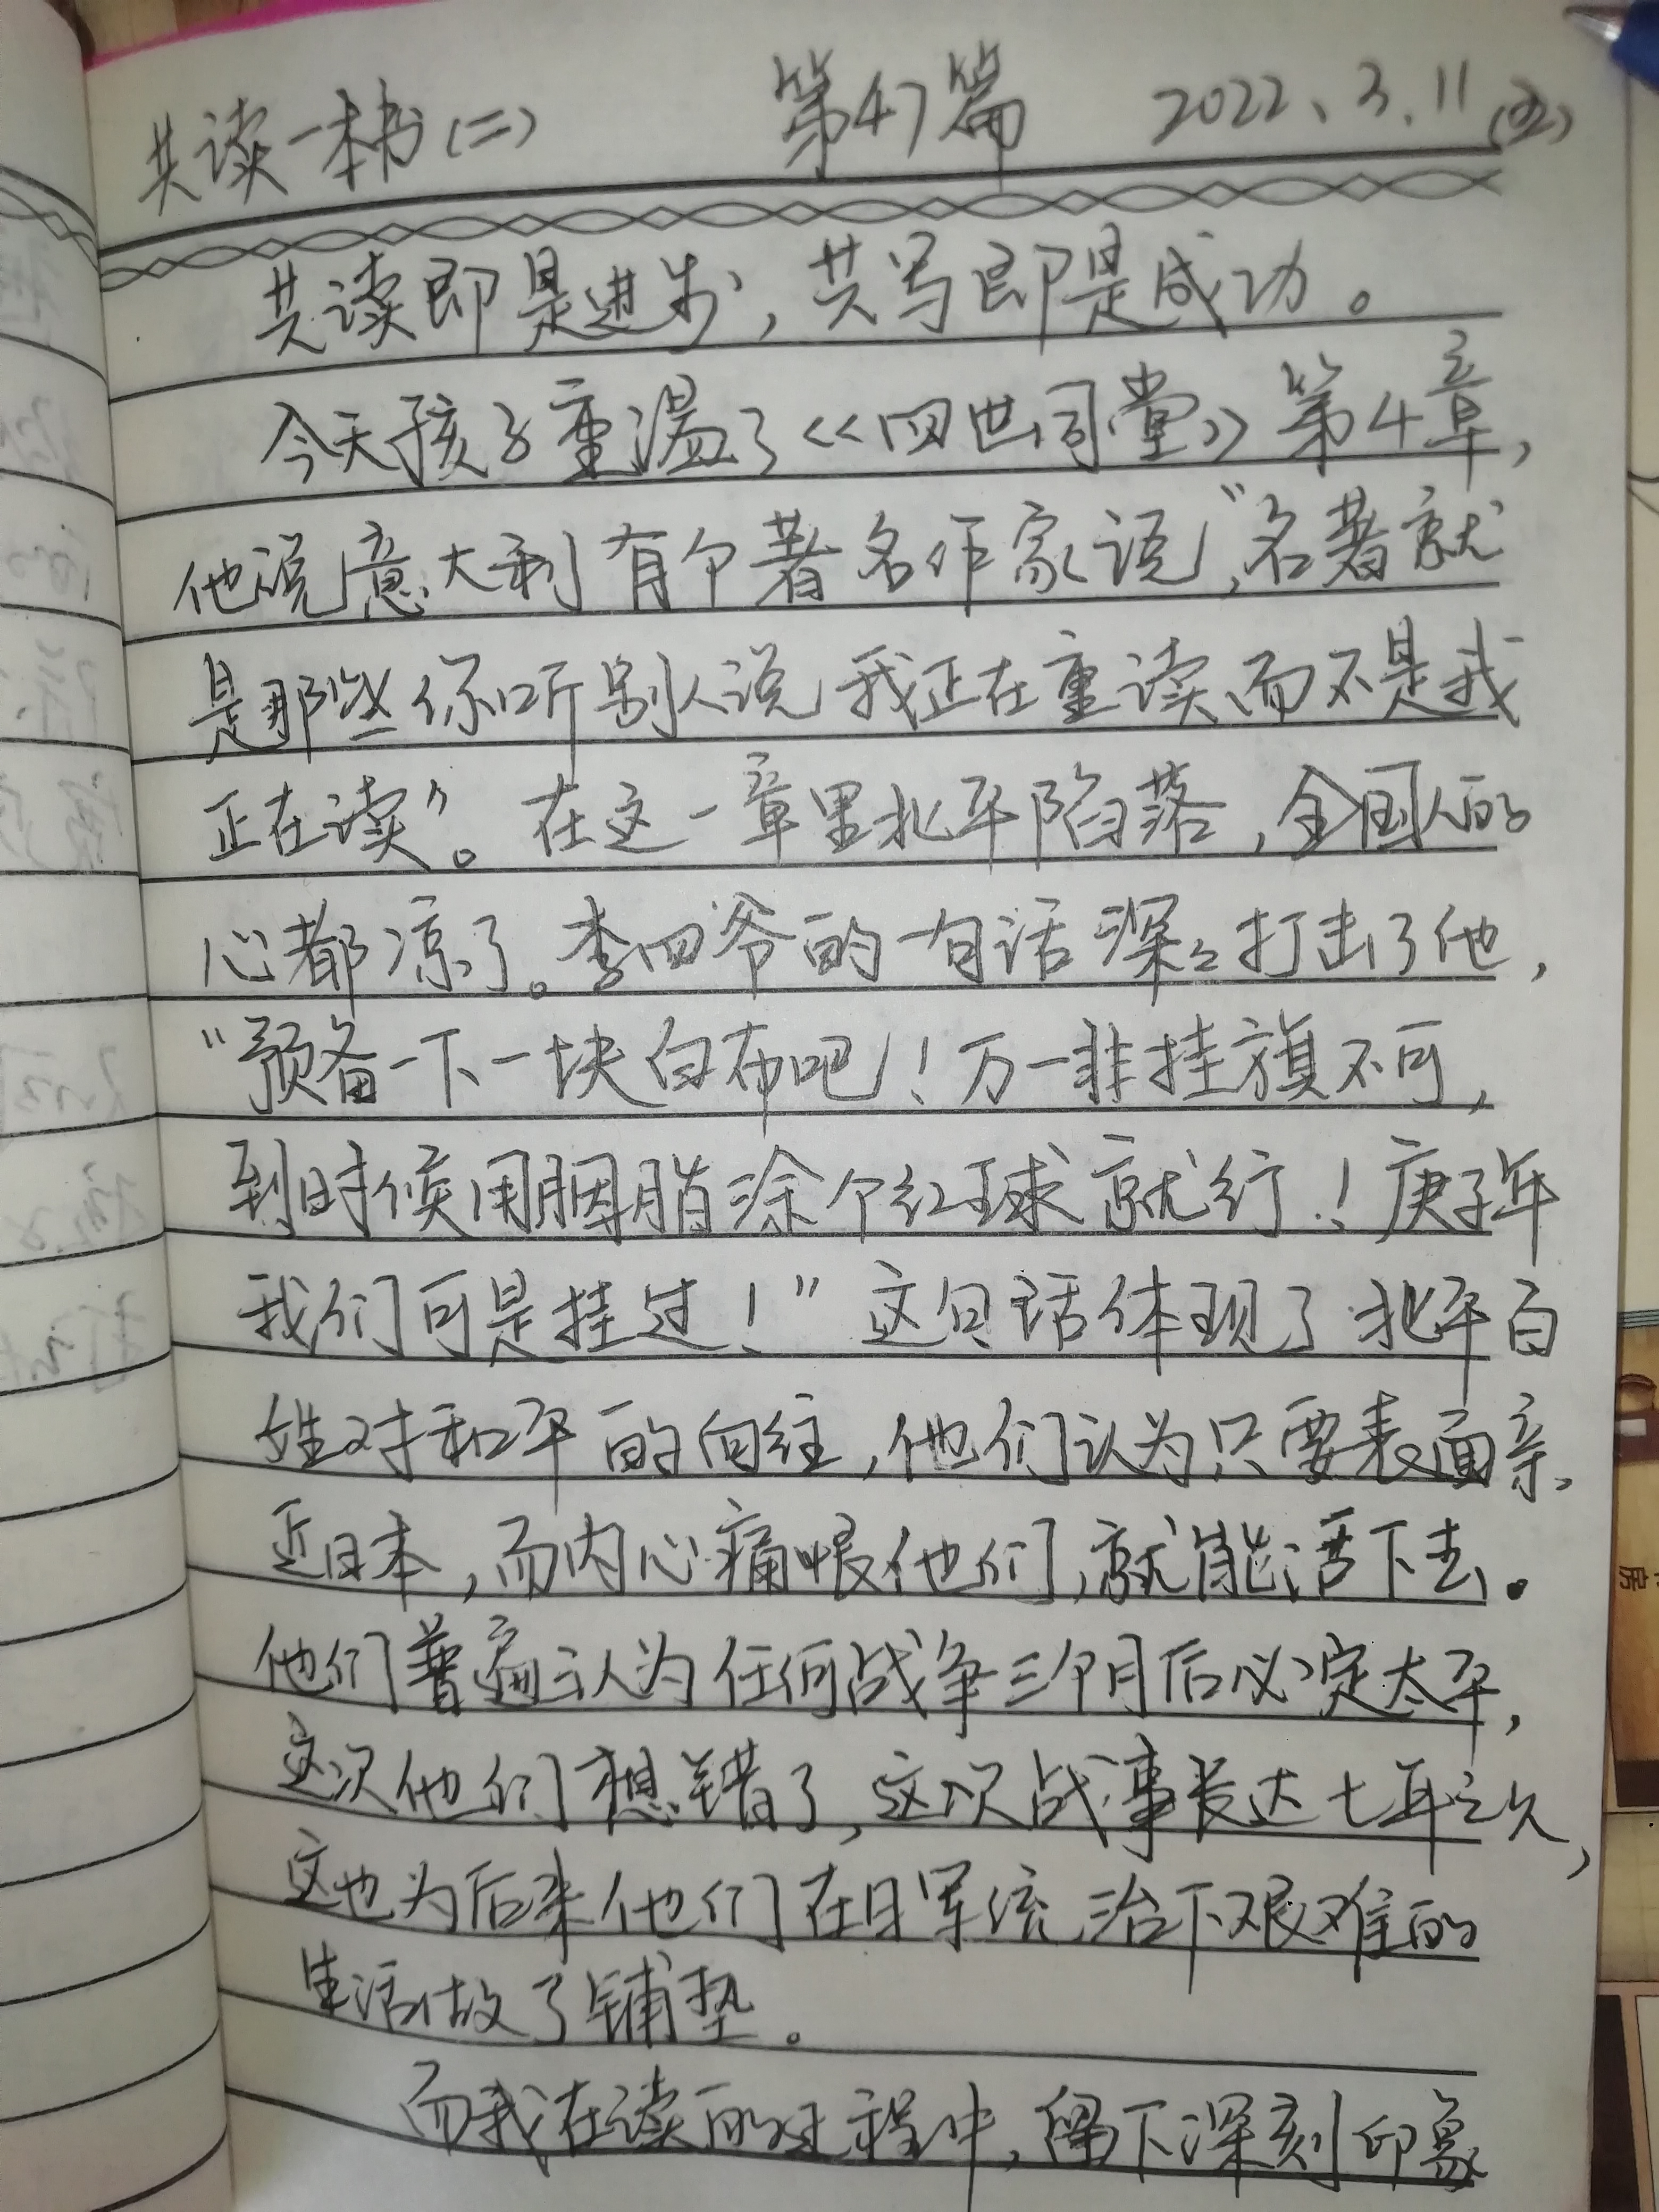 共读一本书(二) 第47篇 2022、3.11(五)
共读即是进步，共写即是成功。
今天孩子重温了《四世同堂》第4章，
他说意大利有个著名作家说，"名著就
是那些你听别人说我正在重读而不是我
正在读"。在这一章里北平陷落，全国人的
心都凉了。李四爷的一句话深深打击了他，
"预备一下一块白布吧！万一非挂旗不可，
到时候用胭脂涂个红球就行！庚子年
我们可是挂过！"这句话体现了北平百
姓对和平的向往，他们认为只要表面亲
近日本，而内心痛恨他们，就能活下去。
他们普遍认为任何战争三个月后必定太平，
这次他们想错了，这次战事长达七年之久，
这也为后来他们在日军统治下艰难的
生活做了铺垫。
而我在读的过程中，留下深刻印象
房